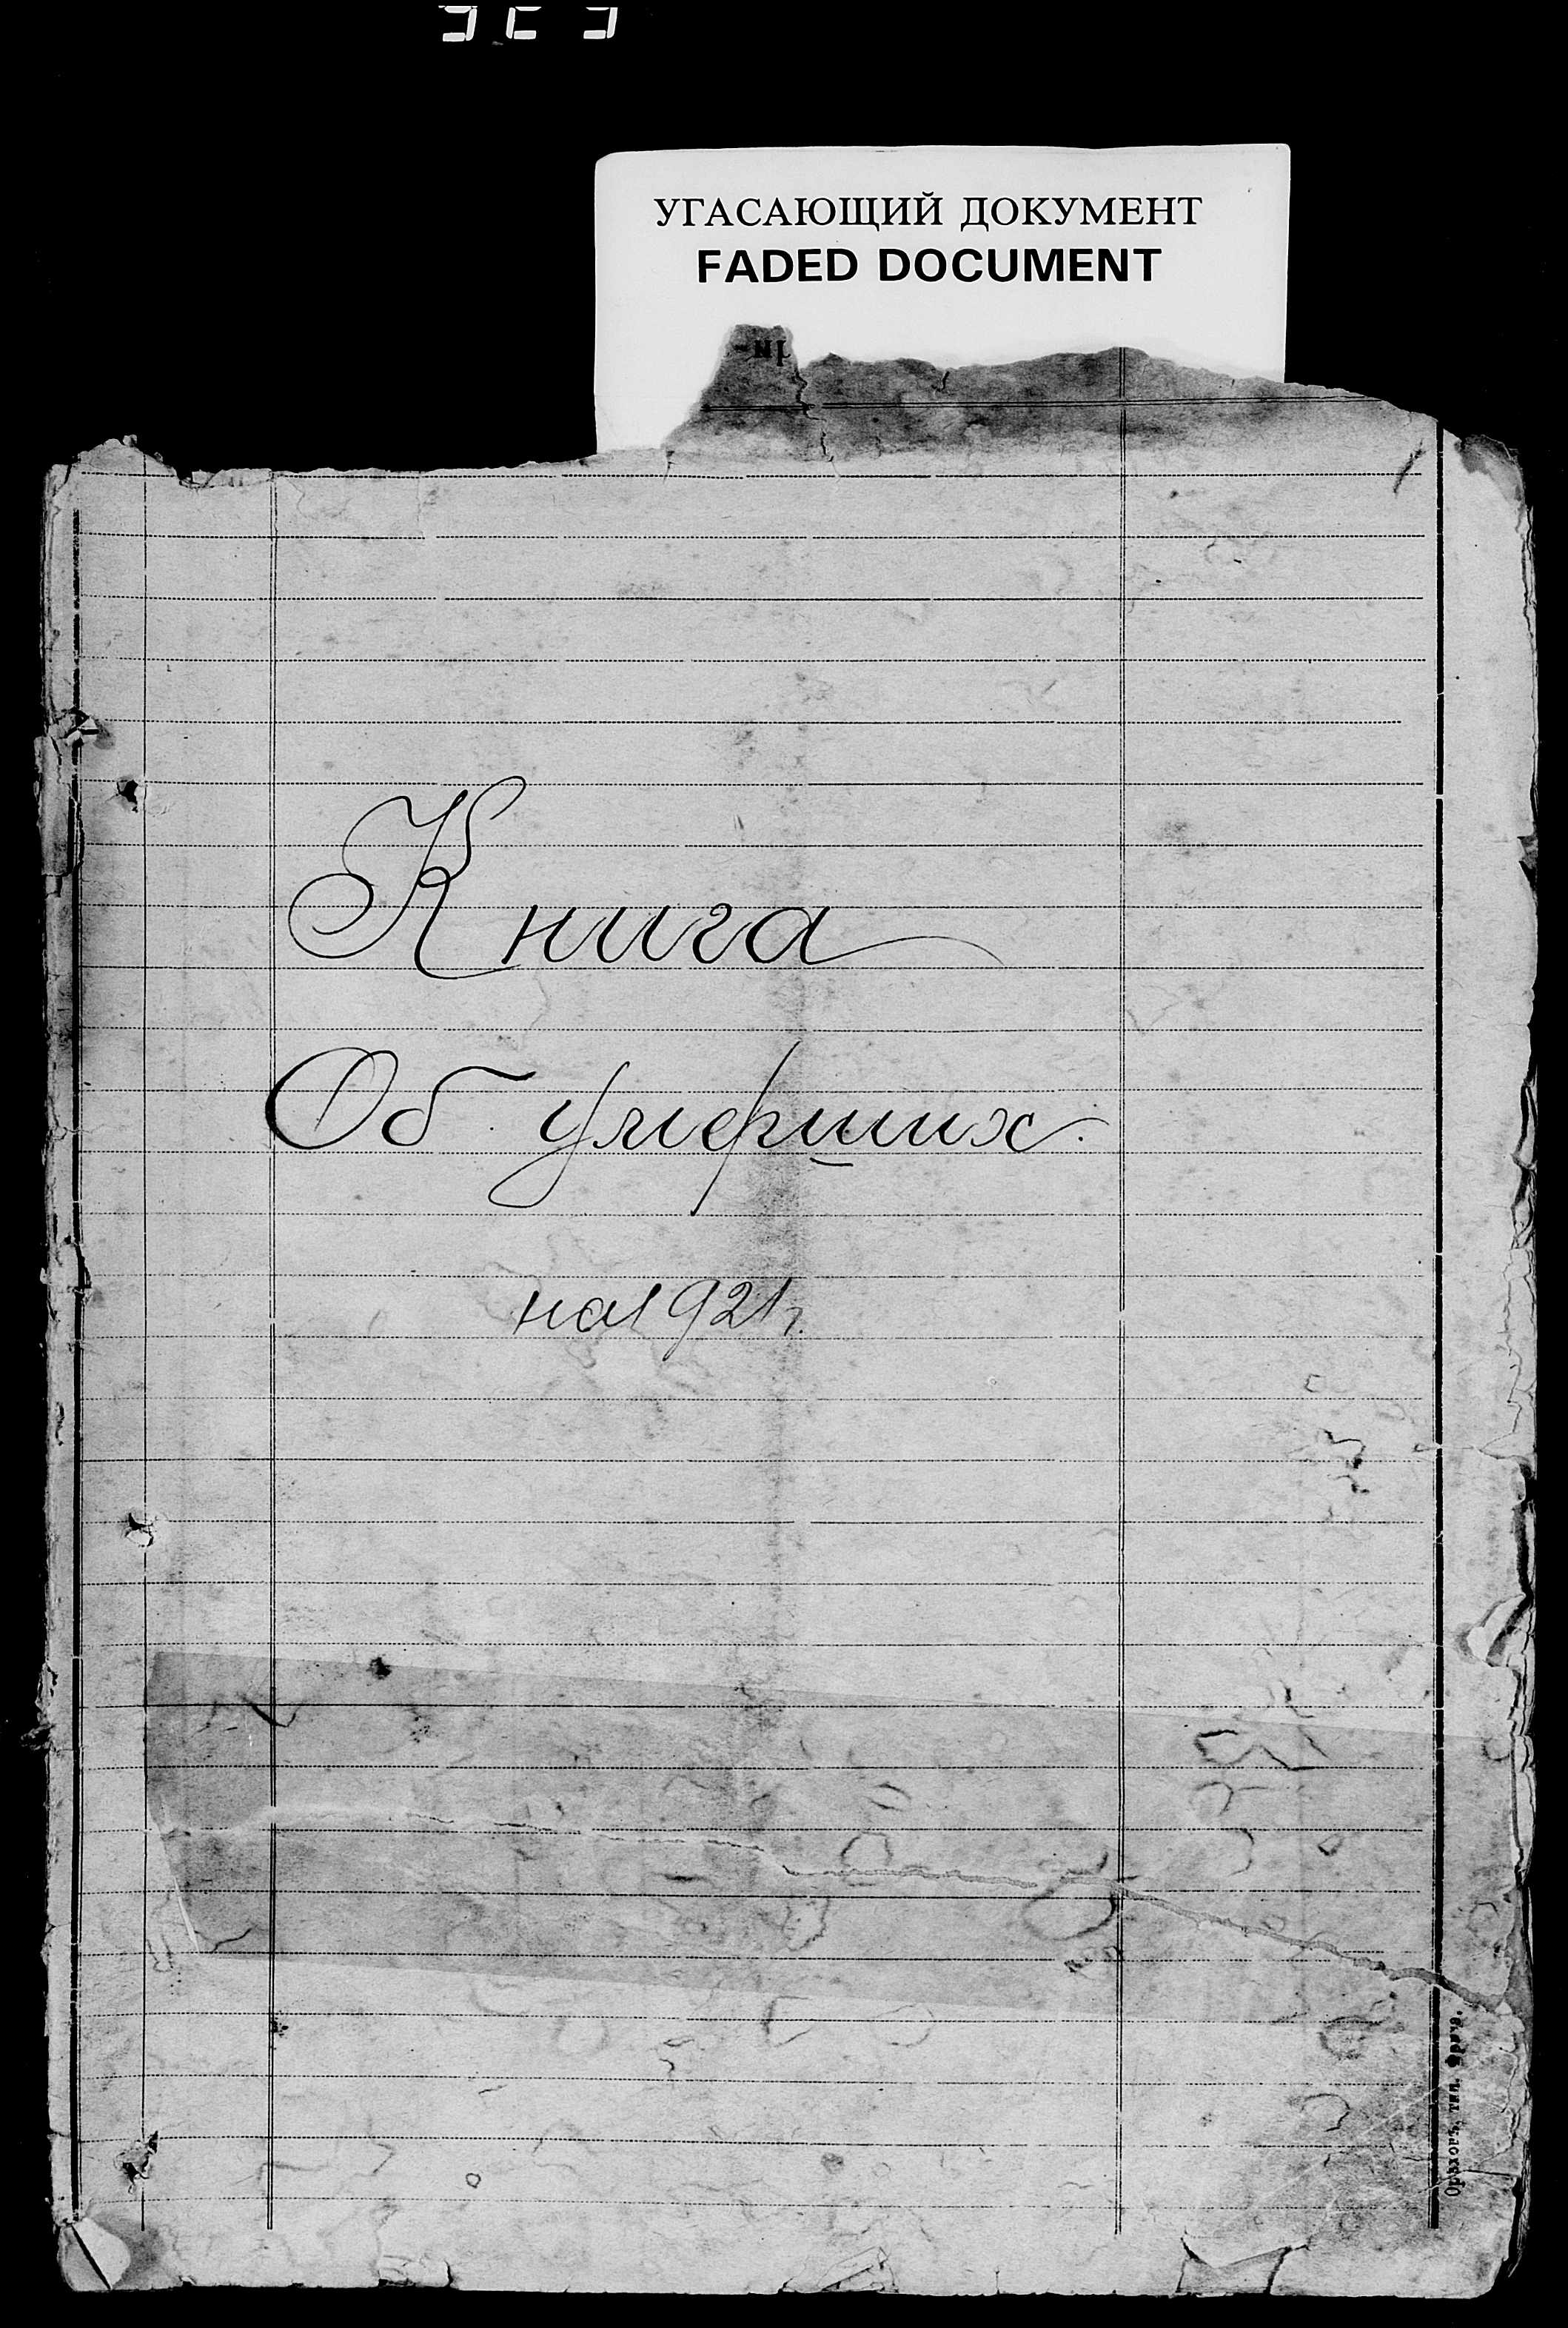 УГАСАЮЩИЙ ДОКУМЕНТ
FADED DOCUMENT
Книга
Об умерших.
на 1921 г.